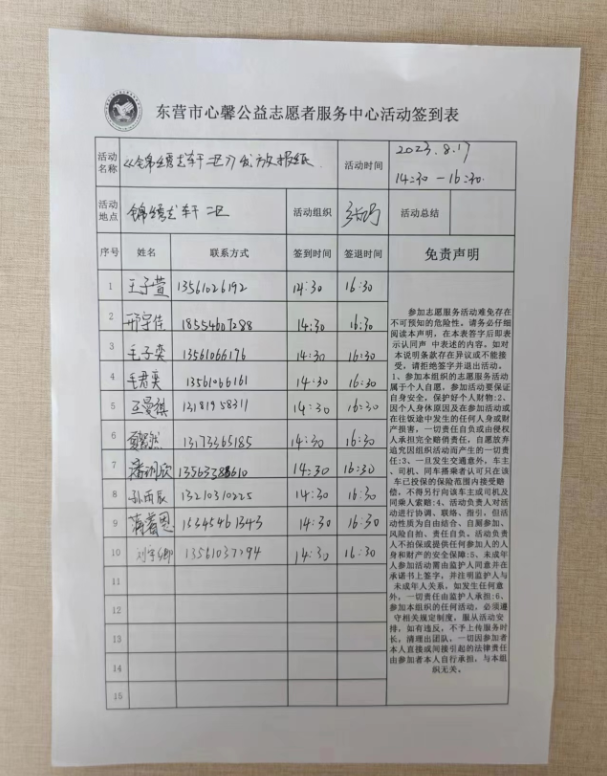 东营市心馨公益志愿者服务中心活动签到表
活动名称 《锦绣龙轩二区》发放报纸 活动时间 2023.8.17 14:30-16:30
活动地点 锦绣龙轩二区 活动组织 活动总结
序号 姓名 联系方式 签到时间 签退时间 免责声明
1 王子萱 13561026192 14:30 16:30
2 邢宇佳 18554607288 14:30 16:30
3 毛子奕 13561066176 14:30 16:30
4 毛君奕 13561066161 14:30 16:30
5 13181958311 14:30 16:30
6 13173365185 14:30 16:30
7 14:30 16:30
8 13210310225 14:30 16:30
9 蒋首恩 15345461343 14:30 16:30
10 刘宇卿 13561037294 14:30 16:30
11
12
13
14
15
参加志愿服务活动难免存在
不可预知的危险性，请务必仔细
阅读本声明，在本表签字后即表
示认同声明中表述的内容。如对
本说明条款存在异议或不能接
受，请拒绝签字并退出活动。
1、参加本组织的志愿服务活动
属于个人自愿，参加活动要保证
自身安全，保护好个人财物;2、
因个人身体原因及在参加活动或
在往饭途中发生的任何人身或财
产损害，一切责任自负或由侵权
人承担完全赔偿责任，自愿放弃
追究因组织活动而产生的一切责
任;3、一旦发生交通意外，车主
、司机、同车搭乘者认可只在该
车已投保的保险范围内接受赔
偿，不得另行向该车主或司机及
同乘人索赔;4、活动负责人对活
动进行协调、联络、指引，但活
动性质为自由结合、自愿参加、
风险自担、责任自负，活动负责
人不担保或提供任何参加人的人
身和财产的安全保障;5、未成年
人参加活动需由监护人同意并在
承诺书上签字，并注明监护人与
未成年人关系，如发生任何意
外，一切责任由监护人承担;6、
参加本组织的任何活动，必须遵
守相关规定制度，服从活动安
排，如有违反，不予上传服务时
长，清理出团队，一切因参加者
本人直接或间接引起的法律责任
由参加者本人自行承担，与本组
织无关。